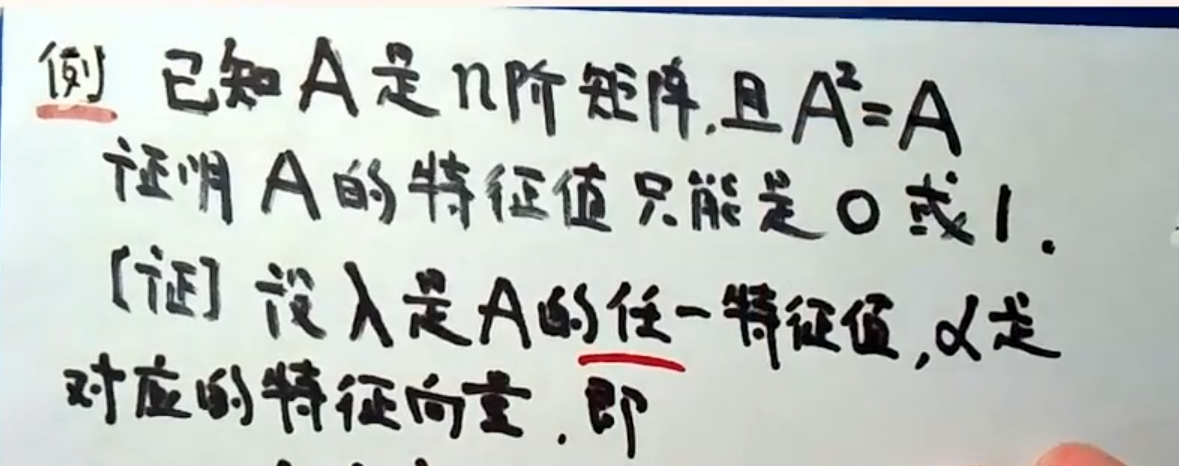 例 已知A是n阶矩阵,且A²=A
证明A的特征值只能是0或1.
[证] 设λ是A的任一特征值,α是
对应的特征向量.即